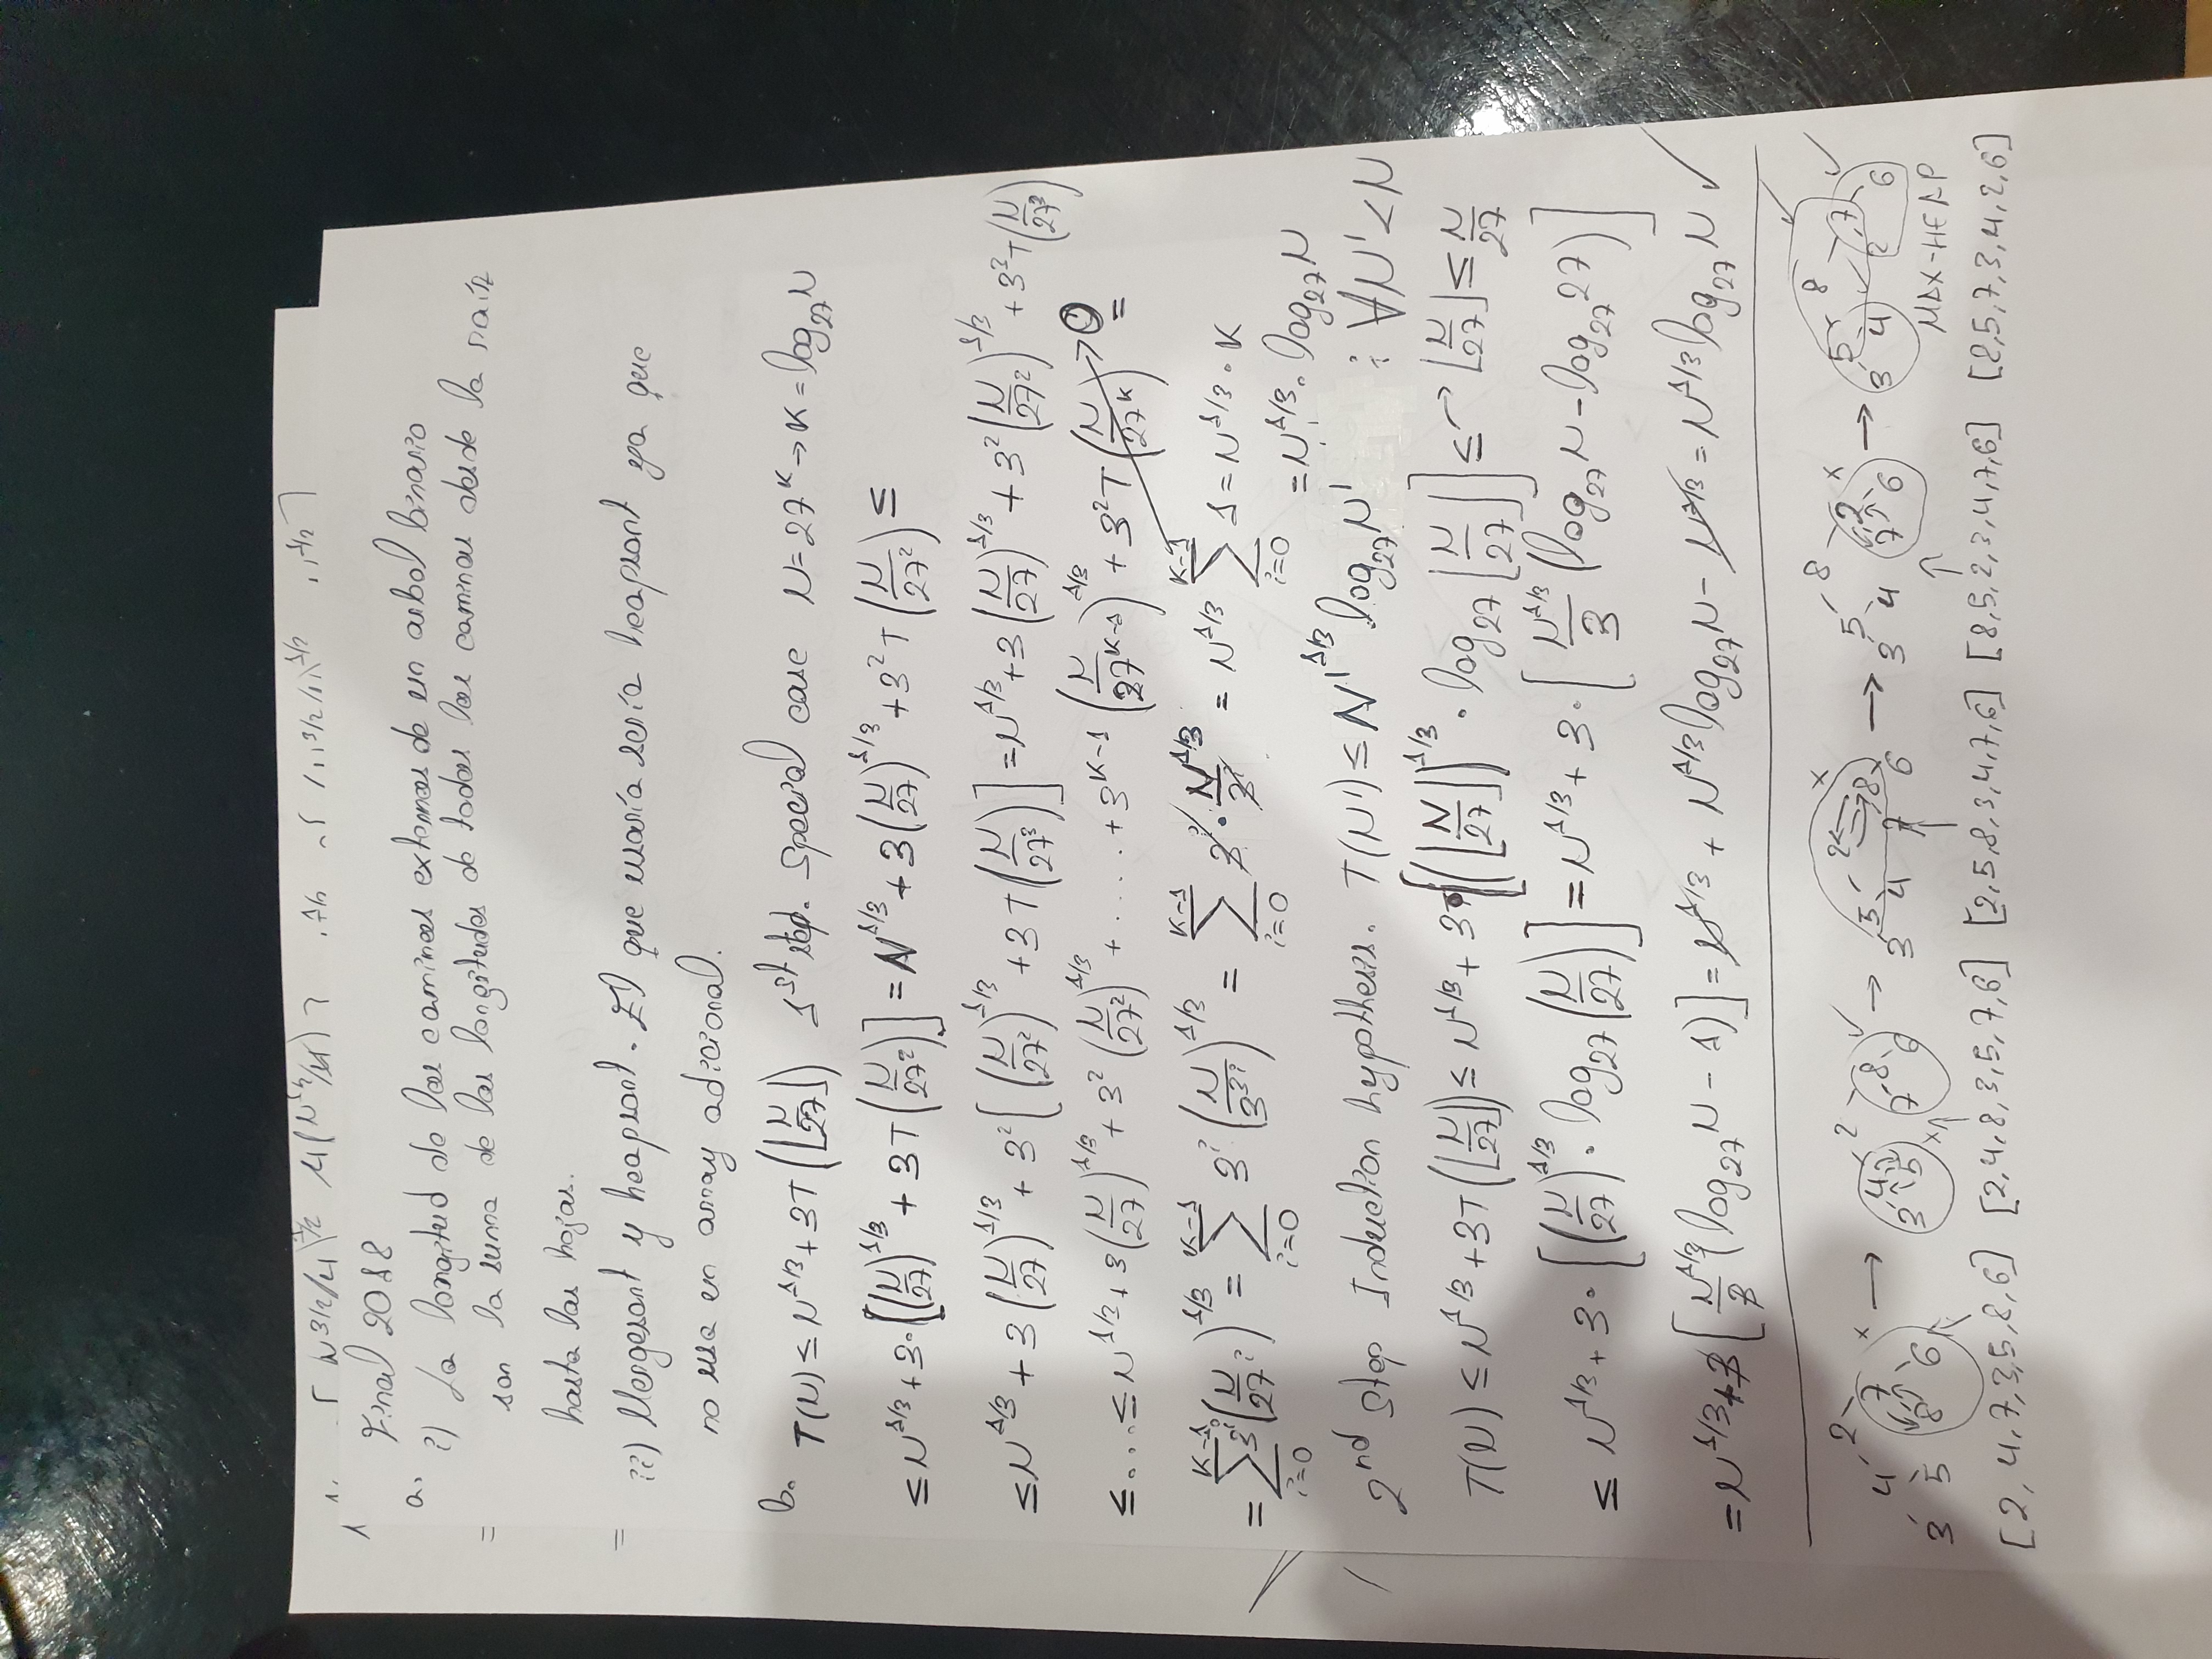 Final 2018
a.
i) La longitud de los caminos externos de un arbol binario
son la suma de las longitudes de todos los caminos desde la raíz
hasta las hojas.
ii) Mergesort y heapsort. El que usaría sería heapsort ya que
no usa un array adicional.
b. T(N) ≤ N^{1/3} + 3T(⌊N/27⌋) 1st step. Special case N = 27^K → K = log_{27} N
≤ N^{1/3} + 3·[(N/27)^{1/3} + 3T(N/27²)] = N^{1/3} + 3(N/27)^{1/3} + 3²T(N/27²) ≤
≤ N^{1/3} + 3(N/27)^{1/3} + 3²[(N/27²)^{1/3} + 3T(N/27³)] = N^{1/3} + 3(N/27)^{1/3} + 3²(N/27²)^{1/3} + 3³T(N/27³)
≤ ... ≤ N^{1/3} + 3(N/27)^{1/3} + 3²(N/27²)^{1/3} + ..... + 3^{K-1}(N/27^{K-1})^{1/3} + 3²T(N/27^K) → 0 =
= Σ_{i=0}^{K-1} 3^i (N/27^i)^{1/3} = Σ_{i=0}^{K-1} 3^i (N/3^{3i})^{1/3} = Σ_{i=0}^{K-1} 3^i · N^{1/3}/3^i = N^{1/3} Σ_{i=0}^{K-1} 1 = N^{1/3} · K
= N^{1/3} · log_{27} N
2nd Step Induction hypothesis. T(N') ≤ N'^{1/3} log_{27} N' ; ∀N' < N
T(N) ≤ N^{1/3} + 3T(⌊N/27⌋) ≤ N^{1/3} + 3[(⌊N/27⌋)^{1/3} · log_{27} ⌊N/27⌋] ≤ → ⌊N/27⌋ ≤ N/27
≤ N^{1/3} + 3·[(N/27)^{1/3} · log_{27}(N/27)] = N^{1/3} + 3·[N^{1/3}/3 (log_{27} N - log_{27} 27)]
= N^{1/3} + 3[N^{1/3}/3 (log_{27} N - 1)] = N^{1/3} + N^{1/3} log_{27} N - N^{1/3} = N^{1/3} log_{27} N ✓
2 x → 2 ✓ → 2 x → 8 x → 8 ✓
4 7 4 8 5 8 5 2 5 7 ✓
3 5 8 6 3 5 7 6 x 3 4 7 6 3 4 7 6 3 4 2 6
MAX-HEAP
[2, 4, 7, 3, 5, 8, 6] [2,4,8,3,5,7,6] [2,5,8,3,4,7,6] [8,5,2,3,4,7,6] [8,5,7,3,4,2,6]